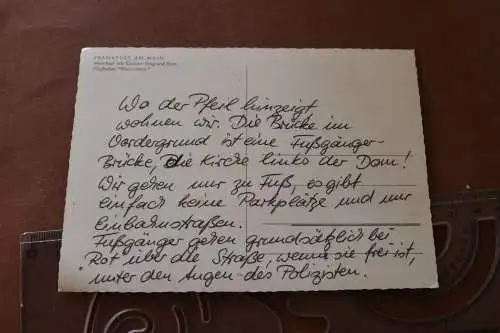 FRANKFURT AM MAIN
Wo der Pfeil hinzeigt
wohnen wir. Die Brücke im
Vordergrund ist eine Fußgänger-
Brücke, Die Kirche links der Dom!
Wir gehen nur zu Fuß, es gibt
einfach keine Parkplätze und nur
Einbahnstraßen.
Fußgänger gehen grundsätzlich bei
Rot über die Straße, wenn sie frei ist,
unter den Augen des Polizisten.